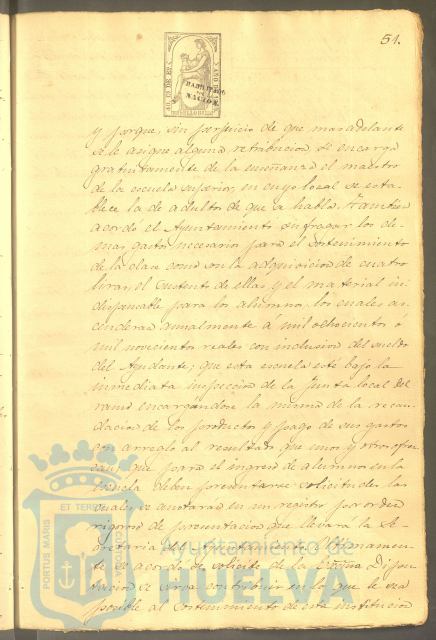 51.
HABILITADO
NACION.
y porque, sin perjuicio de que mas adelante
se le asigne alguna retribucion, se encarga
gratuitamente de la enseñanza el maestro
de la escuela superior, en cuyo local se esta-
blece la de adultos de que se habla. Tambien
acordó el Ayuntamiento sufragar los de-
mas gastos necesarios para el sostenimiento
de la clase como son la adquisicion de cuatro
luces, el sustento de ellas y el material in-
dispensable para los alumnos, los cuales as-
cenderan anualmente á mil ochocientos ó
mil novecientos reales con inclusion del sueldo
del Ayudante; que esta escuela esté bajo la
inmediata inspeccion de la Junta local del
ramo encargandose la misma de la recau-
dacion de los productos y pago de sus gastos
con arreglo al resultado que unos y otros ofrez-
can; que para el ingreso de alumnos en la
Escuela deben presentarse solicitudes las
cuales se anotaran en un registro por orden
rigoroso de presentacion que llevará la Se-
cretaria del Ayuntamiento. Ultimamen-
te se acordó se solicite de la Excma Dipu-
tacion se sirva contribuir en lo que le sea
posible al sostenimiento de esta institucion
PORTUS MARIS ET TERRAE CUSTODIA
Ayuntamiento de
HUELVA